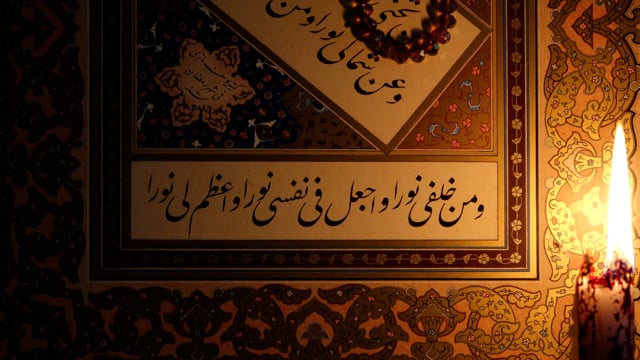 وعن شمالی نورا ومن
ومن خلفی نورا واجعل فی نفسی نورا واعظم لی نورا